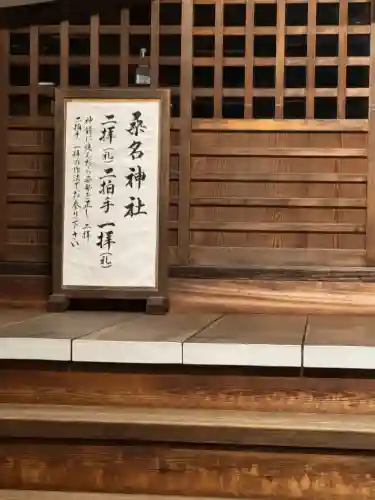 桑名神社
二拝(礼)二拍手一拝(礼)
神前に進みたら姿勢を正し 二拝
二拍手 一拝の作法でお参り下さい